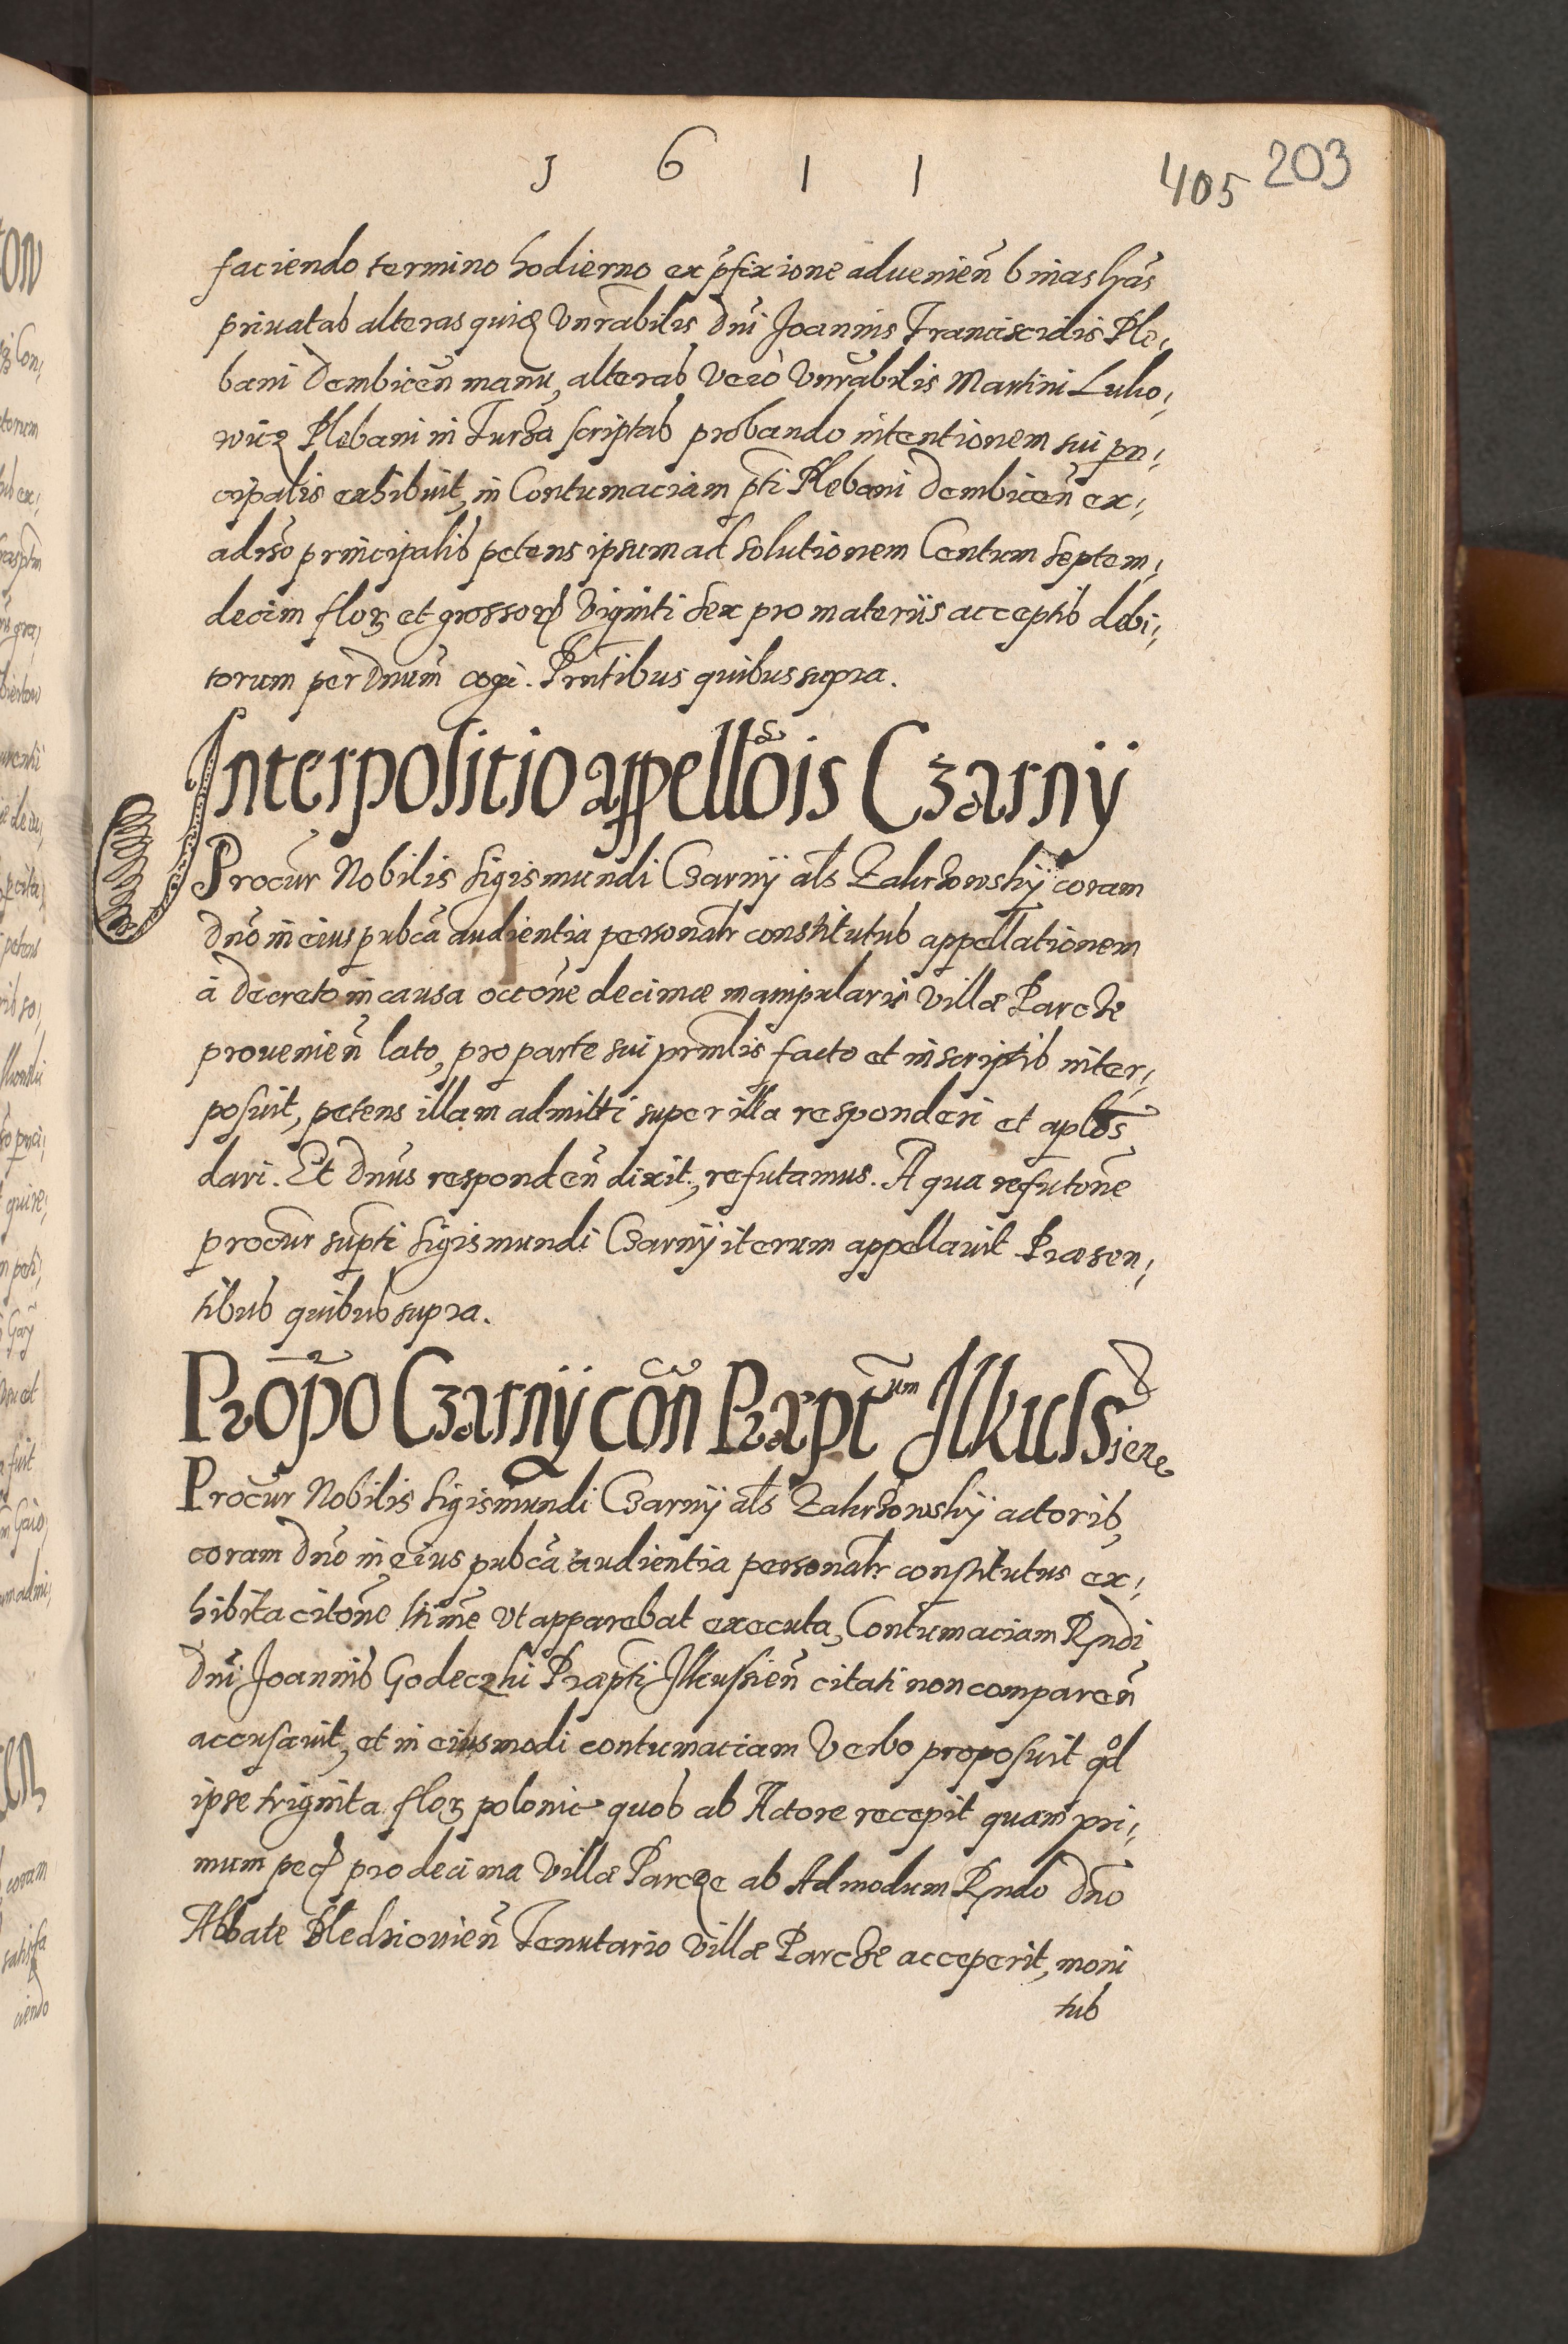 1 6 1 1
405 203
faciendo termino hodierno ex p̃fixione advenien̄ binas lrãs
privatas alteras quid Vnrãbilis dnĩ Joannis Franciscidis Ple¡
bani Dembicen̄ manu, alteras Vero Vnrãbilis Martini Luko¡
wicz Plebani in Turza scriptas probando intentionem sui prn¡
cipalis exhibuit, in Contumaciam pt̃i Plebani Dembicen̄ ex¡
adrso principalis petens ipsum ad solutionem Centum septem¡
decim floꝝ et grossoꝝ Viginti sex pro materiis acceptis debi¡
torum per Dnum̃ cogi. Prñtibus quibus supra.
Interpositio appellõis Czarny
Procur̃ Nobilis Sigismundi Czarny als̃ Zakrzowsky coram
Dnõ in eius pubcã audientia personalr̃ constitutus appellationem
à decreto in causa occõne decimæ manipularis Villæ Parcze
provenien̄ lato, pro parte sui prnl̃is facto et in scriptis inter¡
posuit, petens illam admitti super illa responderi et aplõs
dari. Et Dnũs responden̄ dixit, refutamus. A qua refutõne
procur̃ supt̃i Sigismundi Czarny iterum appellavit Præsen¡
tibus quibus supra.
Propõ Czarny con̄ Præpt̃um Ilkussiene
Procur̃ Nobilis Sigismundi Czarny als̃ Zakrzowsky actoris,
coram Dnõ in eius pubcã audientia personalr̃ constitutus ex¡
hibita citõne ltĩme Vt apparebat executa, Contumaciam Rndĩ
Dnĩ Joannis Godeczki Præpt̃i Ilkussien̄ citati non comparen̄
accusavit, et in eiusmodi contumaciam Verbo proposuit qd̊
ipse triginta floꝝ polonic quos ab Actore recepit quam pri¡
mum pro decima Villæ Parcze ab Admodum Rndõ Dnõ
Abbate Hledzionien̄ Tenutario Villæ Parcze acceperit, moni
tus